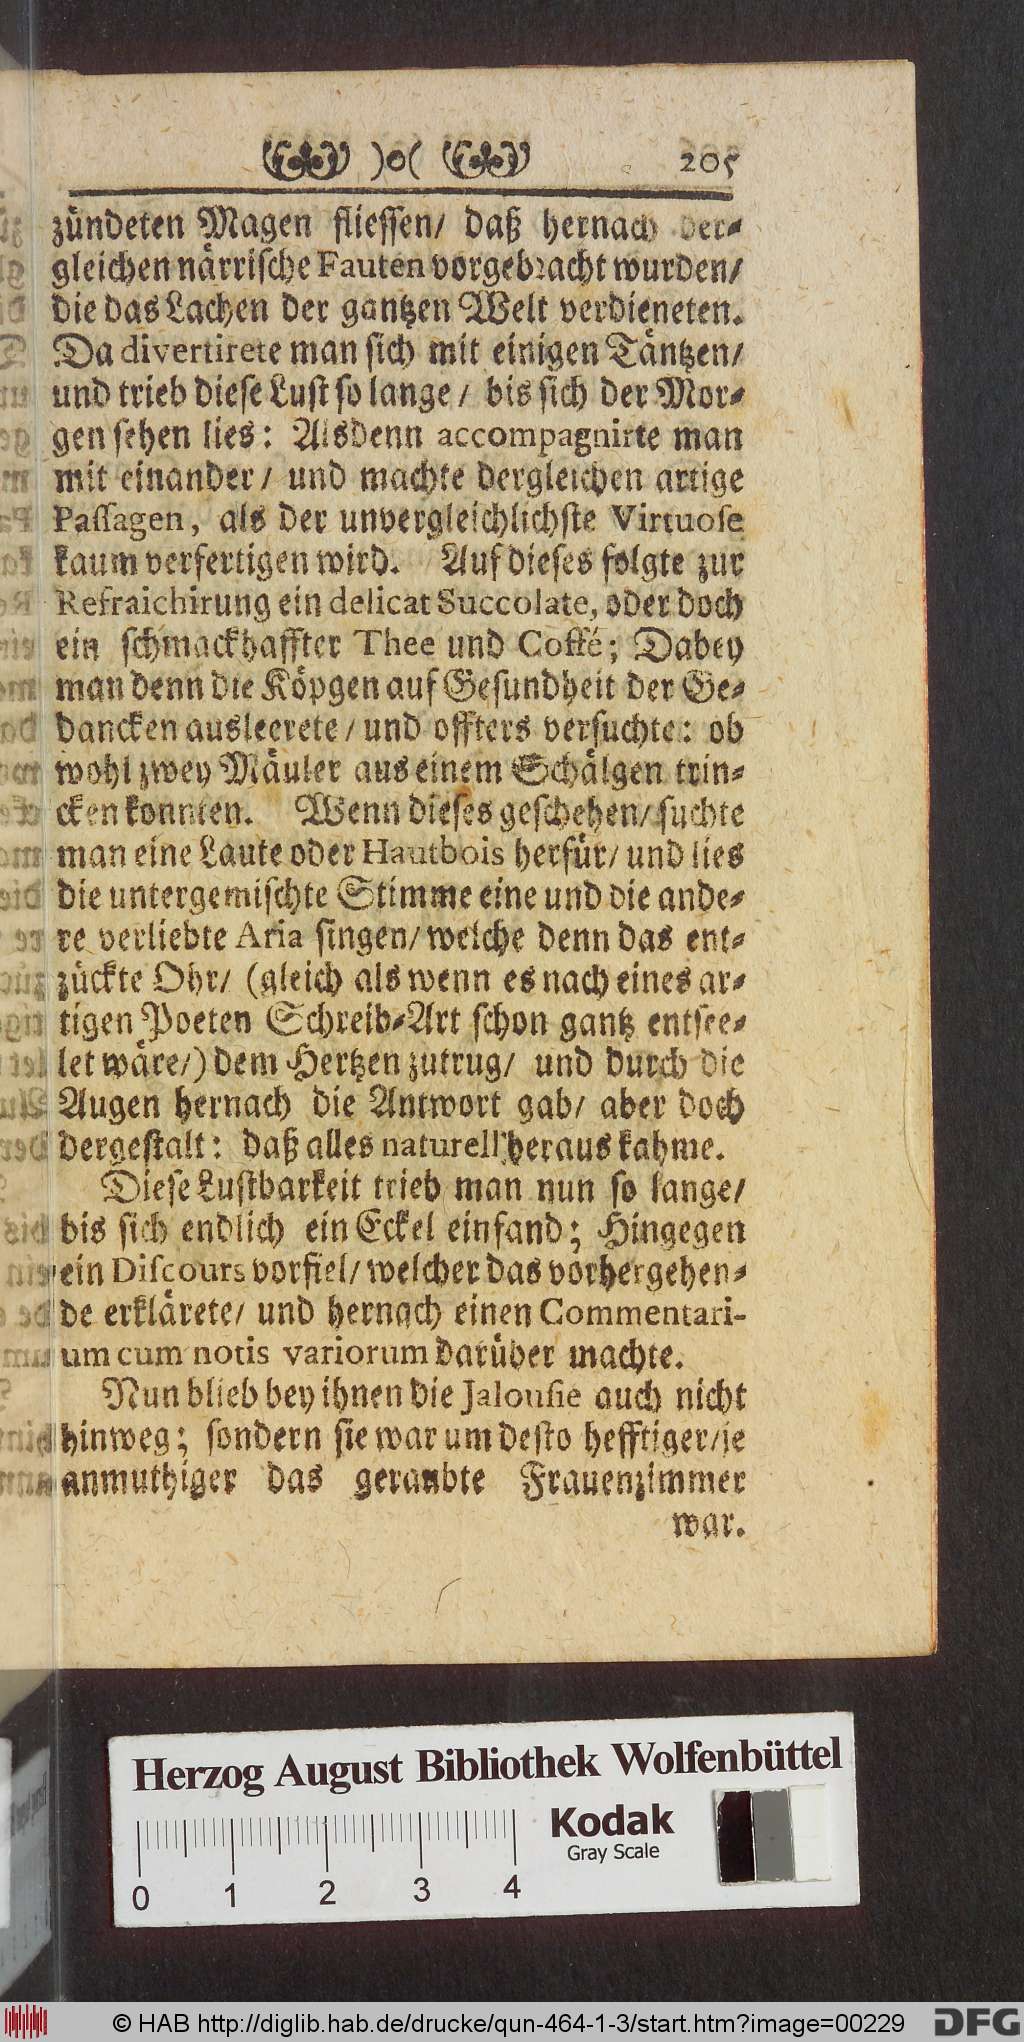 )o( 205
zündeten Magen fliessen/ daß hernach der-
gleichen närrische Fauten vorgebracht wurden/
die das Lachen der gantzen Welt verdieneten.
Da divertirete man sich mit einigen Täntzen/
und trieb diese Lust so lange/ bis sich der Mor-
gen sehen lies: Alsdenn accompagnirte man
mit einander/ und machte dergleichen artige
Passagen, als der unvergleichlichste Virtuose
kaum verfertigen wird. Auf dieses folgte zur
Refraichirung ein delicat Succolate, oder doch
ein schmackhaffter Thee und Coffé; Dabey
man denn die Köpgen auf Gesundheit der Ge-
dancken ausleerete/ und offters versuchte: ob
wohl zwey Mäuler aus einem Schälgen trin-
cken konnten. Wenn dieses geschehen/ suchte
man eine Laute oder Hautbois herfür/ und lies
die untergemischte Stimme eine und die ande-
re verliebte Aria singen/ welche denn das ent-
zückte Ohr/ (gleich als wenn es nach eines ar-
tigen Poeten Schreib-Art schon gantz entsee-
let wäre/) dem Hertzen zutrug/ und durch die
Augen hernach die Antwort gab/ aber doch
dergestalt: daß alles naturell heraus kahme.
Diese Lustbarkeit trieb man nun so lange/
bis sich endlich ein Eckel einfand; Hingegen
ein Discours vorfiel/ welcher das vorhergehen-
de erklärete/ und hernach einen Commentari-
um cum notis variorum darüber machte.
Nun blieb bey ihnen die Jalousie auch nicht
hinweg; sondern sie war um desto hefftiger/ je
anmuthiger das geraubte Frauenzimmer
war.
Herzog August Bibliothek Wolfenbüttel
Kodak
Gray Scale
0 1 2 3 4
© HAB http://diglib.hab.de/drucke/qun-464-1-3/start.htm?image=00229
DFG